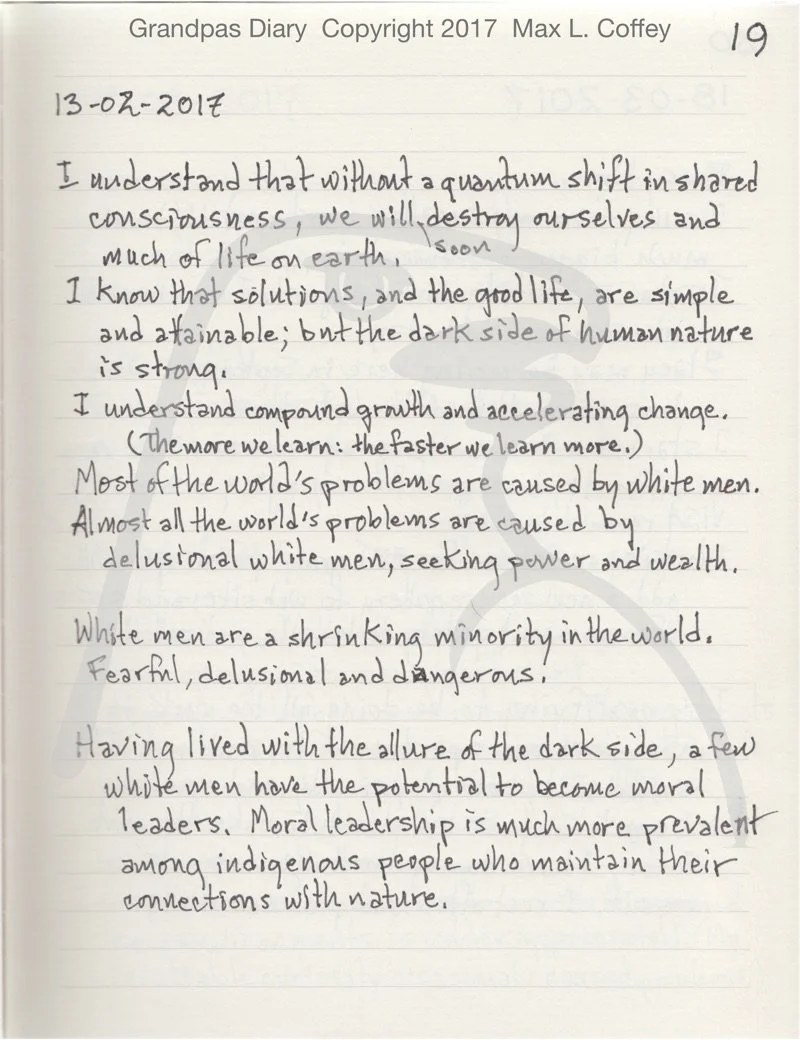 Grandpas Diary Copyright 2017 Max L. Coffey
19
13-02-2017
I understand that without a quantum shift in shared
consciousness, we will soon destroy ourselves and
much of life on earth.
I know that solutions, and the good life, are simple
and attainable; but the dark side of human nature
is strong.
I understand compound growth and accelerating change.
(The more we learn: the faster we learn more.)
Most of the world's problems are caused by white men.
Almost all the world's problems are caused by
delusional white men, seeking power and wealth.
White men are a shrinking minority in the world.
Fearful, delusional and dangerous.
Having lived with the allure of the dark side, a few
white men have the potential to become moral
leaders. Moral leadership is much more prevalent
among indigenous people who maintain their
connections with nature.